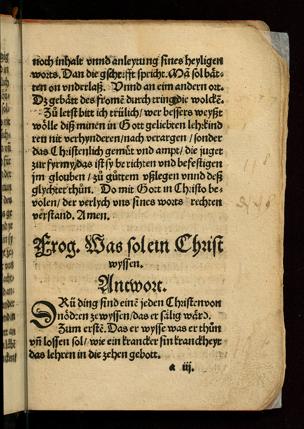 noch inhalt vnnd anleytung sines heyligen
worts. Dan die gschrifft spricht. Mā sol bät-
ten on vnderlaß. Vnnd an eim andern ort.
Dz gebätt des fromē durch tringt die wolckē.
Zů letst bitt ich trülich/ wer bessers weyßt
wölle diß minen in Gott geliebten leh:kind
ren nit verhynderen/ nach verargen/ sonder
das Christenlich gemüt vnd ampt/ die juget
zur fyrmy/ das ist sy be richten vnd befestigen
jm glouben/ zů gůttem vßlegen vnnd deß
glychter thůn. Do mit Gott in Christo be-
volen/ der verlych vns sines worts rechten
verstand. Amen.
Frog. Was sol ein Christ
wyssen.
Antwort.
DRü ding sind einē jeden Christen von
nödren ze wyssen/ das er sälig wärd.
Zum erstē. Das er wysse was er thůn
vñ lossen sol/ wie ein krancker sin kranckheyt
das lehren in die zehen gebott.
a iij.